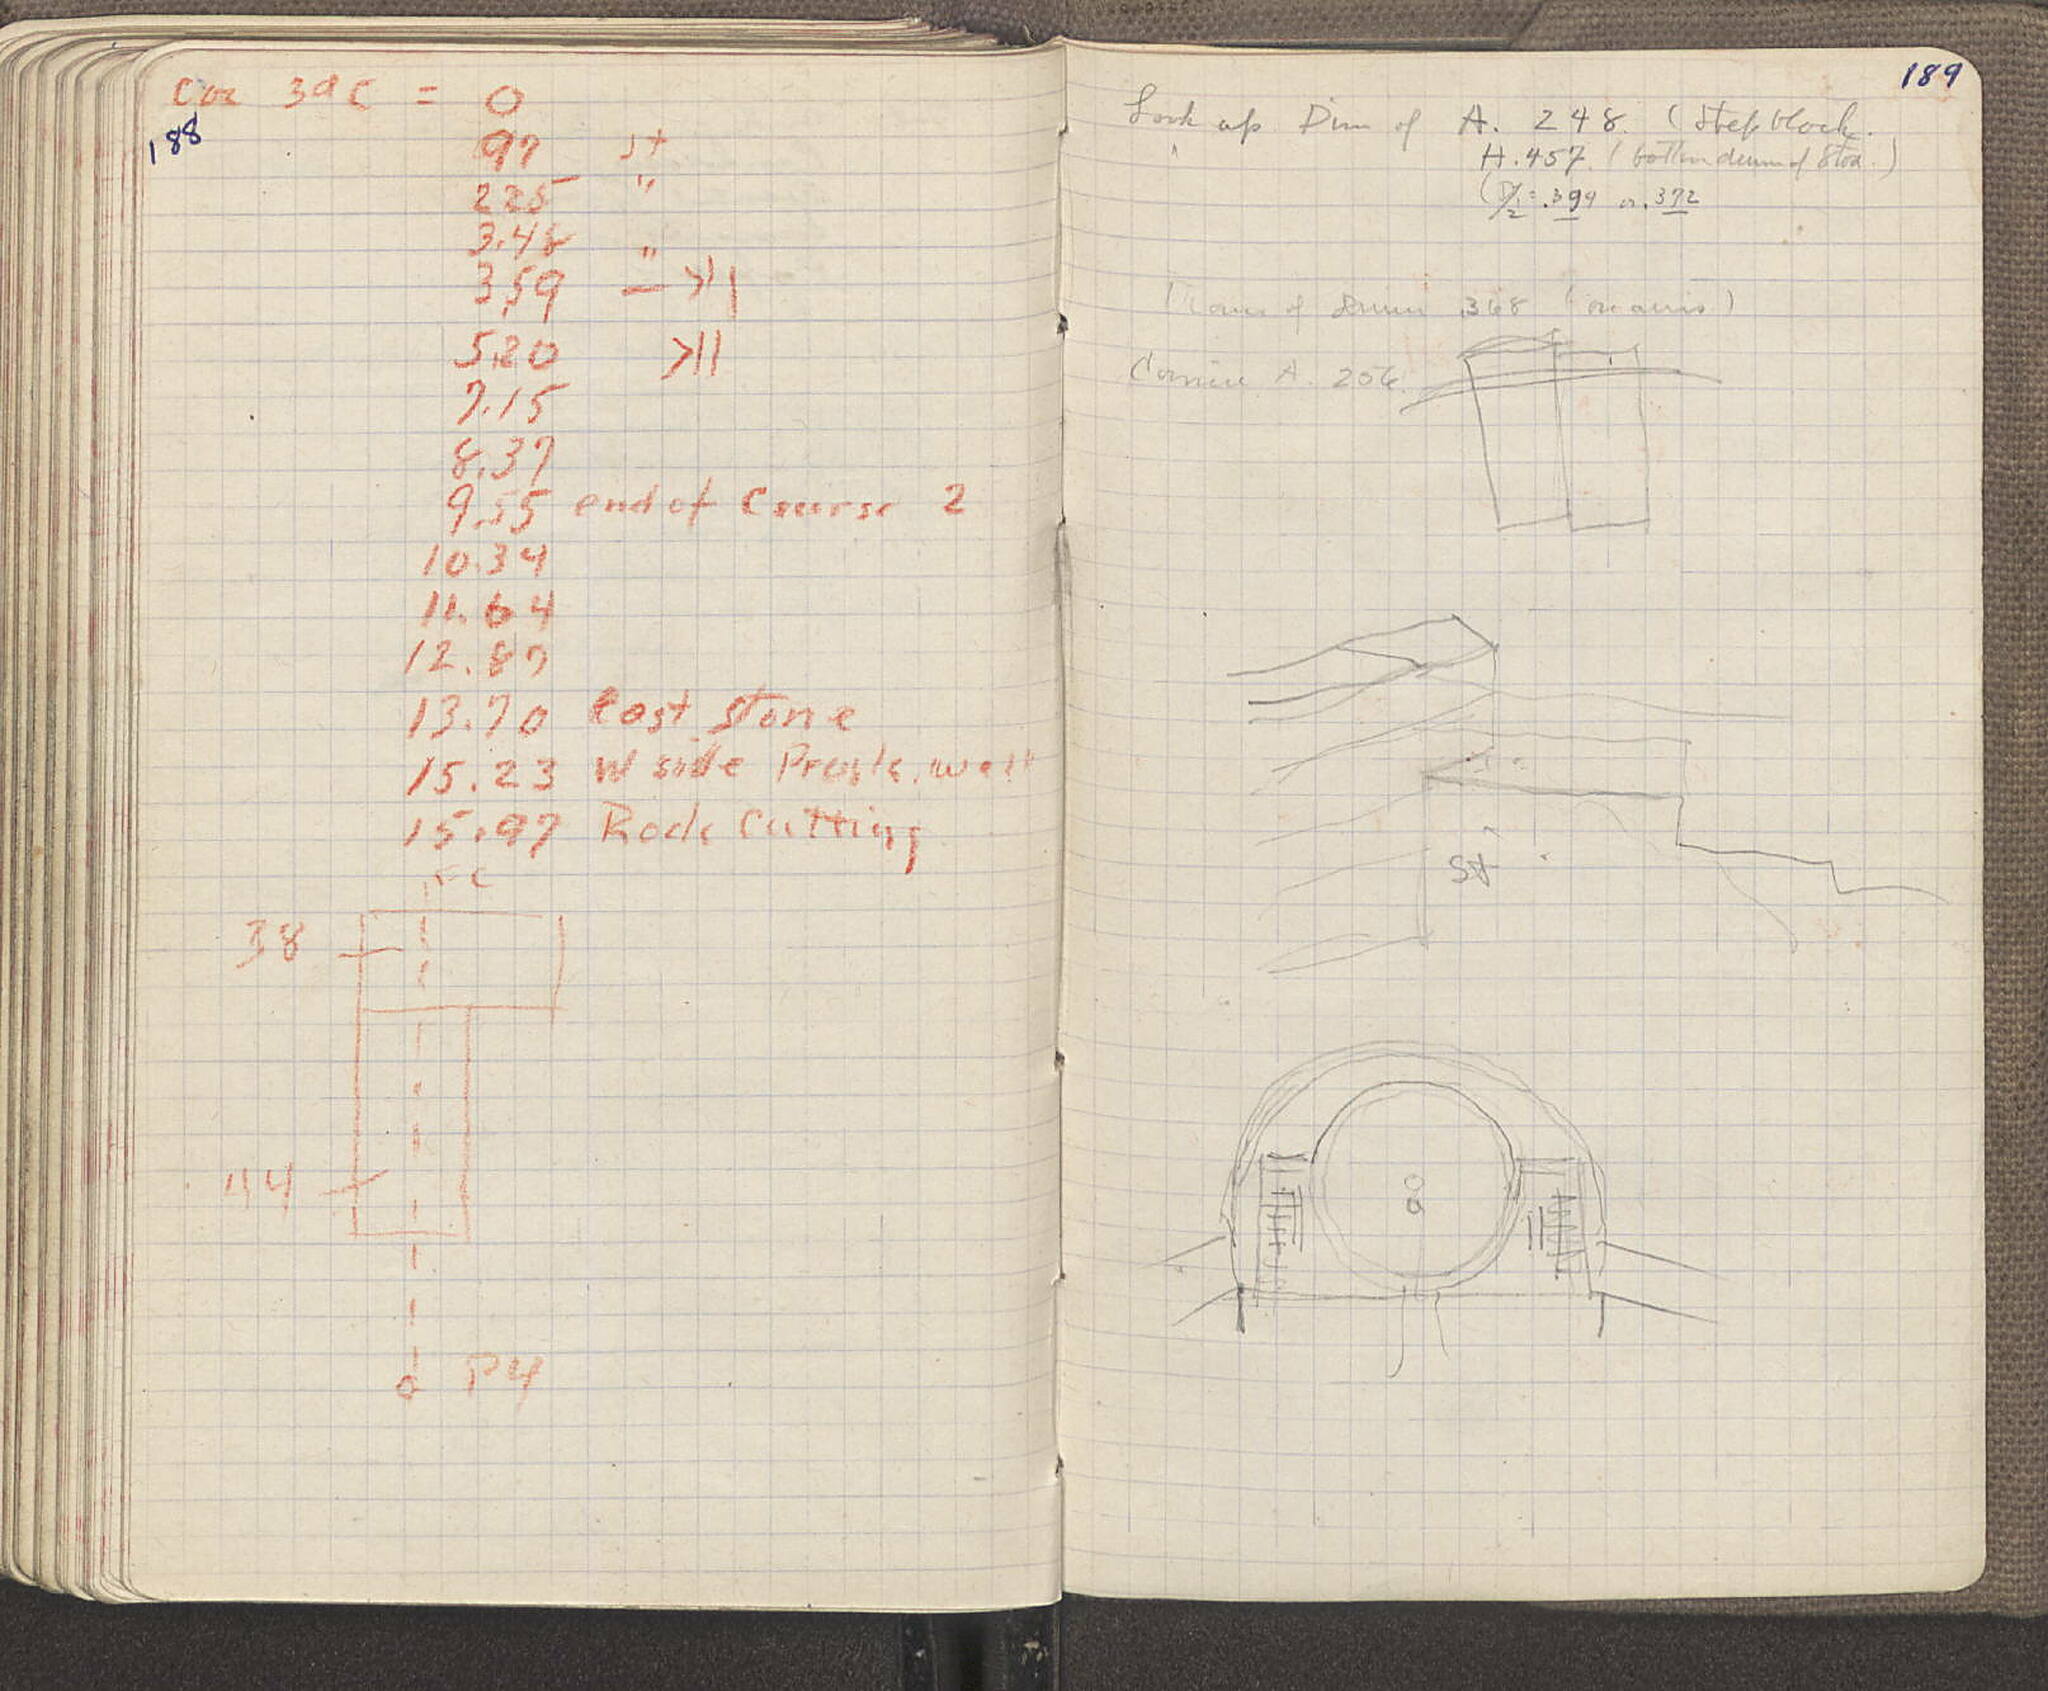 Cor 39C = 0
188
97 St
225 "
3.48 "
3.59 — >||
5.20 >||
7.15
8.37
9.55 end of Course 2
10.34
11.64
12.87
13.70 East Stone
15.23 W side
15.97 Rock Cutting
38
44
P4
189
Look up Dim of A. 248. (Step block.
" H. 457. (bottom drum of Stoa.)
(D/2 = .399 or .372
Diam of drum .368
Cornice A. 256.
St